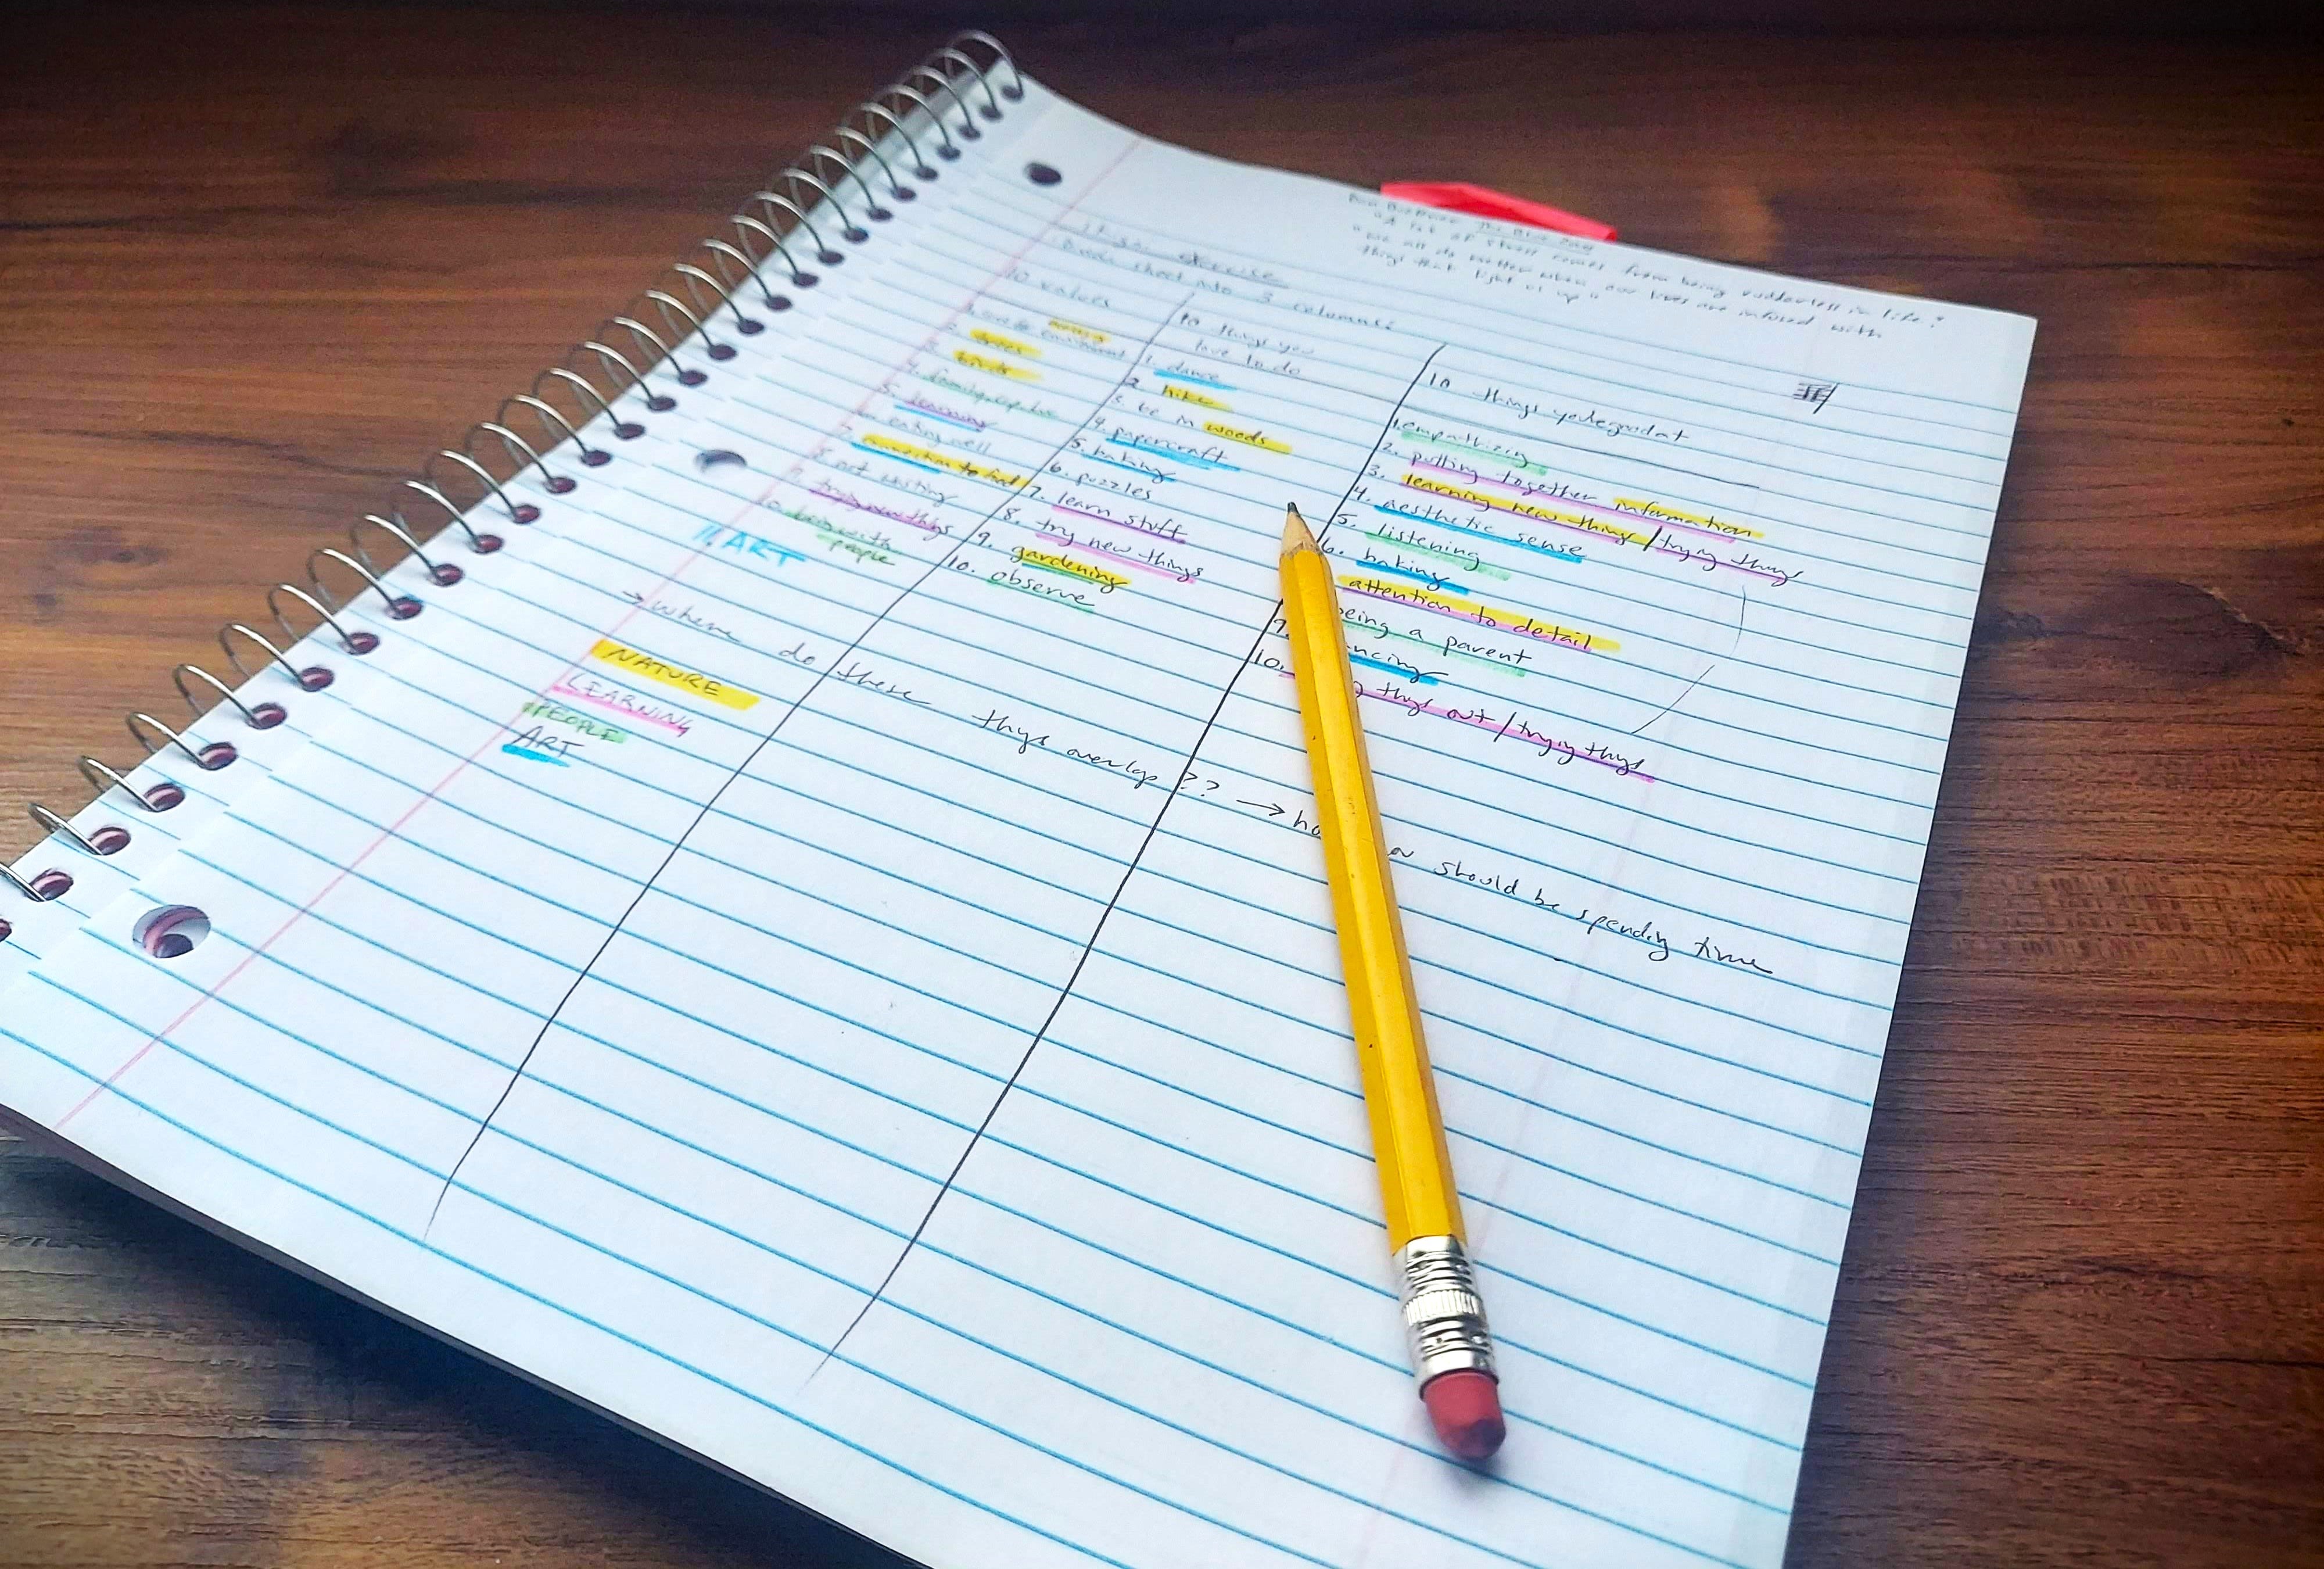 Dan Buettner The Blue Zone
"A lot of stress comes from being rudderless in life"
"We all do better when our lives are infused with
things that light us up"
exercise
sheet into 3 columns:
10 values
1. care
2. trees
3. birds
4. family
5. learning
6. eating well
7. connection to food
8. not wasting
9. trying new things
10. being with
people
ART
10 things you
love to do
1. dance
2. hike
3. be in woods
4. papercraft
5. baking
6. puzzles
7. learn stuff
8. try new things
9. gardening
10. observe
10 things you're good at
1. empathizing
2. putting together information
3. learning new things / trying things
4. aesthetic sense
5. listening
6. baking
attention to detail
being a parent
9. ncing
10. things out / trying things
→ where do these things overlap ?? → ho should be spending time
NATURE
LEARNING
PEOPLE
ART